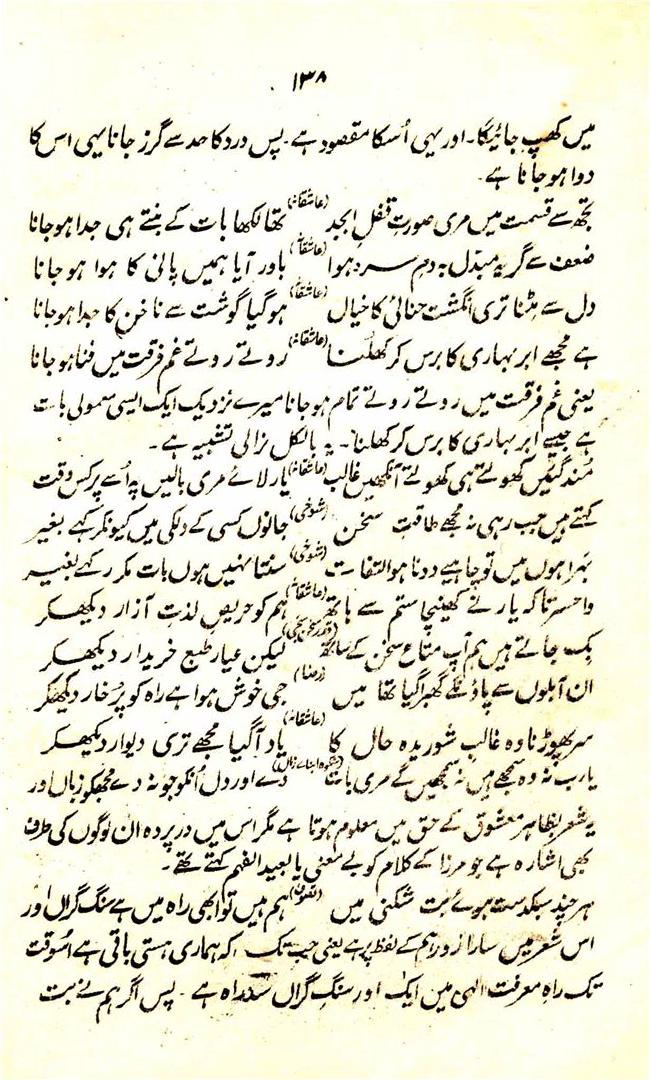 ۱۳۸
میں کھپ جائیگا۔ اور یہی اُسکا مقصود ہے۔ پس درد کا حد سے گرز جانا یہی اس کا
دوا ہو جانا ہے۔
تجھ سے قسمت میں مری صورتِ قفلِ ابجد (عاشقانہ) تھا لکھا بات کے بنتے ہی جدا ہو جانا
ضعف سے گریہ مبدّل بہ دمِ سرد ہوا (عاشقانہ) باور آیا ہمیں پانی کا ہوا ہو جانا
دل سے مٹنا تری انگشت حنائی کا خیال (عاشقانہ) ہو گیا گوشت سے ناخن کا جدا ہو جانا
ہے مجھے ابر بہاری کا برس کر کھلنا (عاشقانہ) روتے روتے غم فرقت میں فنا ہو جانا
یعنی غم فرقت میں روتے روتے تمام ہو جانا میرے نزدیک ایک ایسی معمولی بات
ہے جیسے ابر بہاری کا برس کر کھلنا۔ یہ بالکل نرالی تشبیہ ہے۔
مُند گئیں کھولتے ہی کھولتے آنکھیں غالب (عاشقانہ) یار لائے مری بالیں پہ اُسے پر کس وقت
کہتے ہیں جب رہی نہ مجھے طاقتِ سخن (شوخی) جانوں کسی کے دلکی میں کیونکر کہے بغیر
بہرا ہوں میں تو چاہیے دونا ہو التفات (شوخی) سنتا نہیں ہوں بات مکرر کہے بغیر
واحسرتا کہ یار نے کھینچا ستم سے ہاتھ (عاشقانہ) ہم کو حریصِ لذتِ آزار دیکھکر
بک جاتے ہیں ہم آپ متاعِ سخن کے ساتھ (قدر سخن سنجی) لیکن عیارِ طبع خریدار دیکھکر
ان آبلوں سے پاؤں کے گھبرا گیا تھا میں (رضا) جی خوش ہوا ہے راہ کو پُر خار دیکھکر
سر پھوڑنا وہ غالبِ شوریدہ حال کا (عاشقانہ) یاد آگیا مجھے تری دیوار دیکھکر
یارب نہ وہ سمجھے ہیں نہ سمجھیں گے مری بات (شکوہ ابنائے زماں) دے اور دل اُنکو جو نہ دے مجھکو زباں اور
یہ شعر بظاہر معشوق کے حق میں معلوم ہوتا ہے مگر اس میں درپردہ ان لوگوں کی طرف
بھی اشارہ ہے جو مرزا کے کلام کو بے معنی یا بعید الفہم کہتے تھے۔
ہر چند سبکدست ہوئے بت شکنی میں (تصوف) ہم ہیں تو ابھی راہ میں ہے سنگ گراں اور
اس شعر میں سارا زور ہم کے لفظ پر ہے یعنی جب تک کہ ہماری ہستی باقی ہے اُسوقت
تک راہِ معرفت الٰہی میں ایک اور سنگِ گراں سدراہ ہے۔ پس اگر ہم نے بت